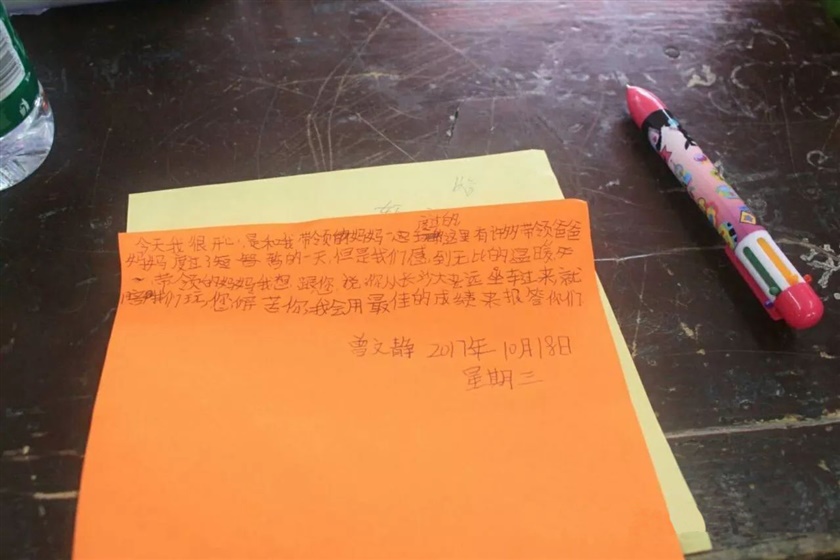 度过的
今天我很开心,是和我带领的妈妈一起 这里有许多带领爸爸
妈妈度过了短暂 的一天,但是我们感到无比的温暖
带领的妈妈我想跟您说:你从长沙大老远坐车过来,就
我们玩,您辛苦你,我会用最佳的成绩来报答你们
曾文静 2017年10月18日
星期三